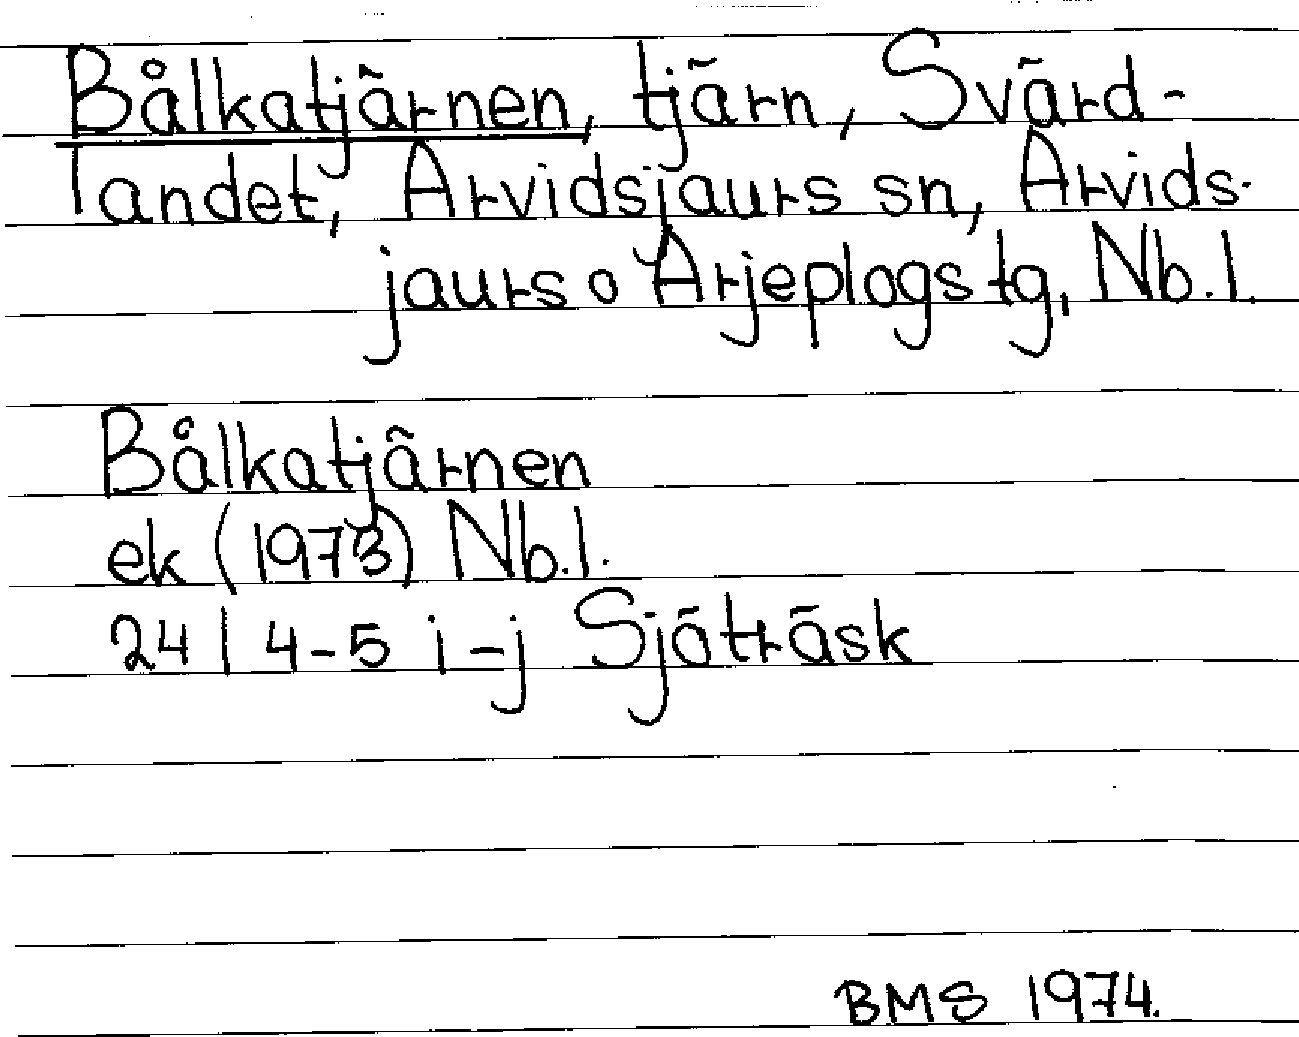 Bålkatjärnen, tjärn, Svärd-
landet, Arvidsjaurs sn, Arvids-
jaurs o Arjeplogs tg, Nb.l.
Bålkatjärnen
ek (1973) Nb.l.
24 I 4-5 i-j Sjöträsk
BMS 1974.